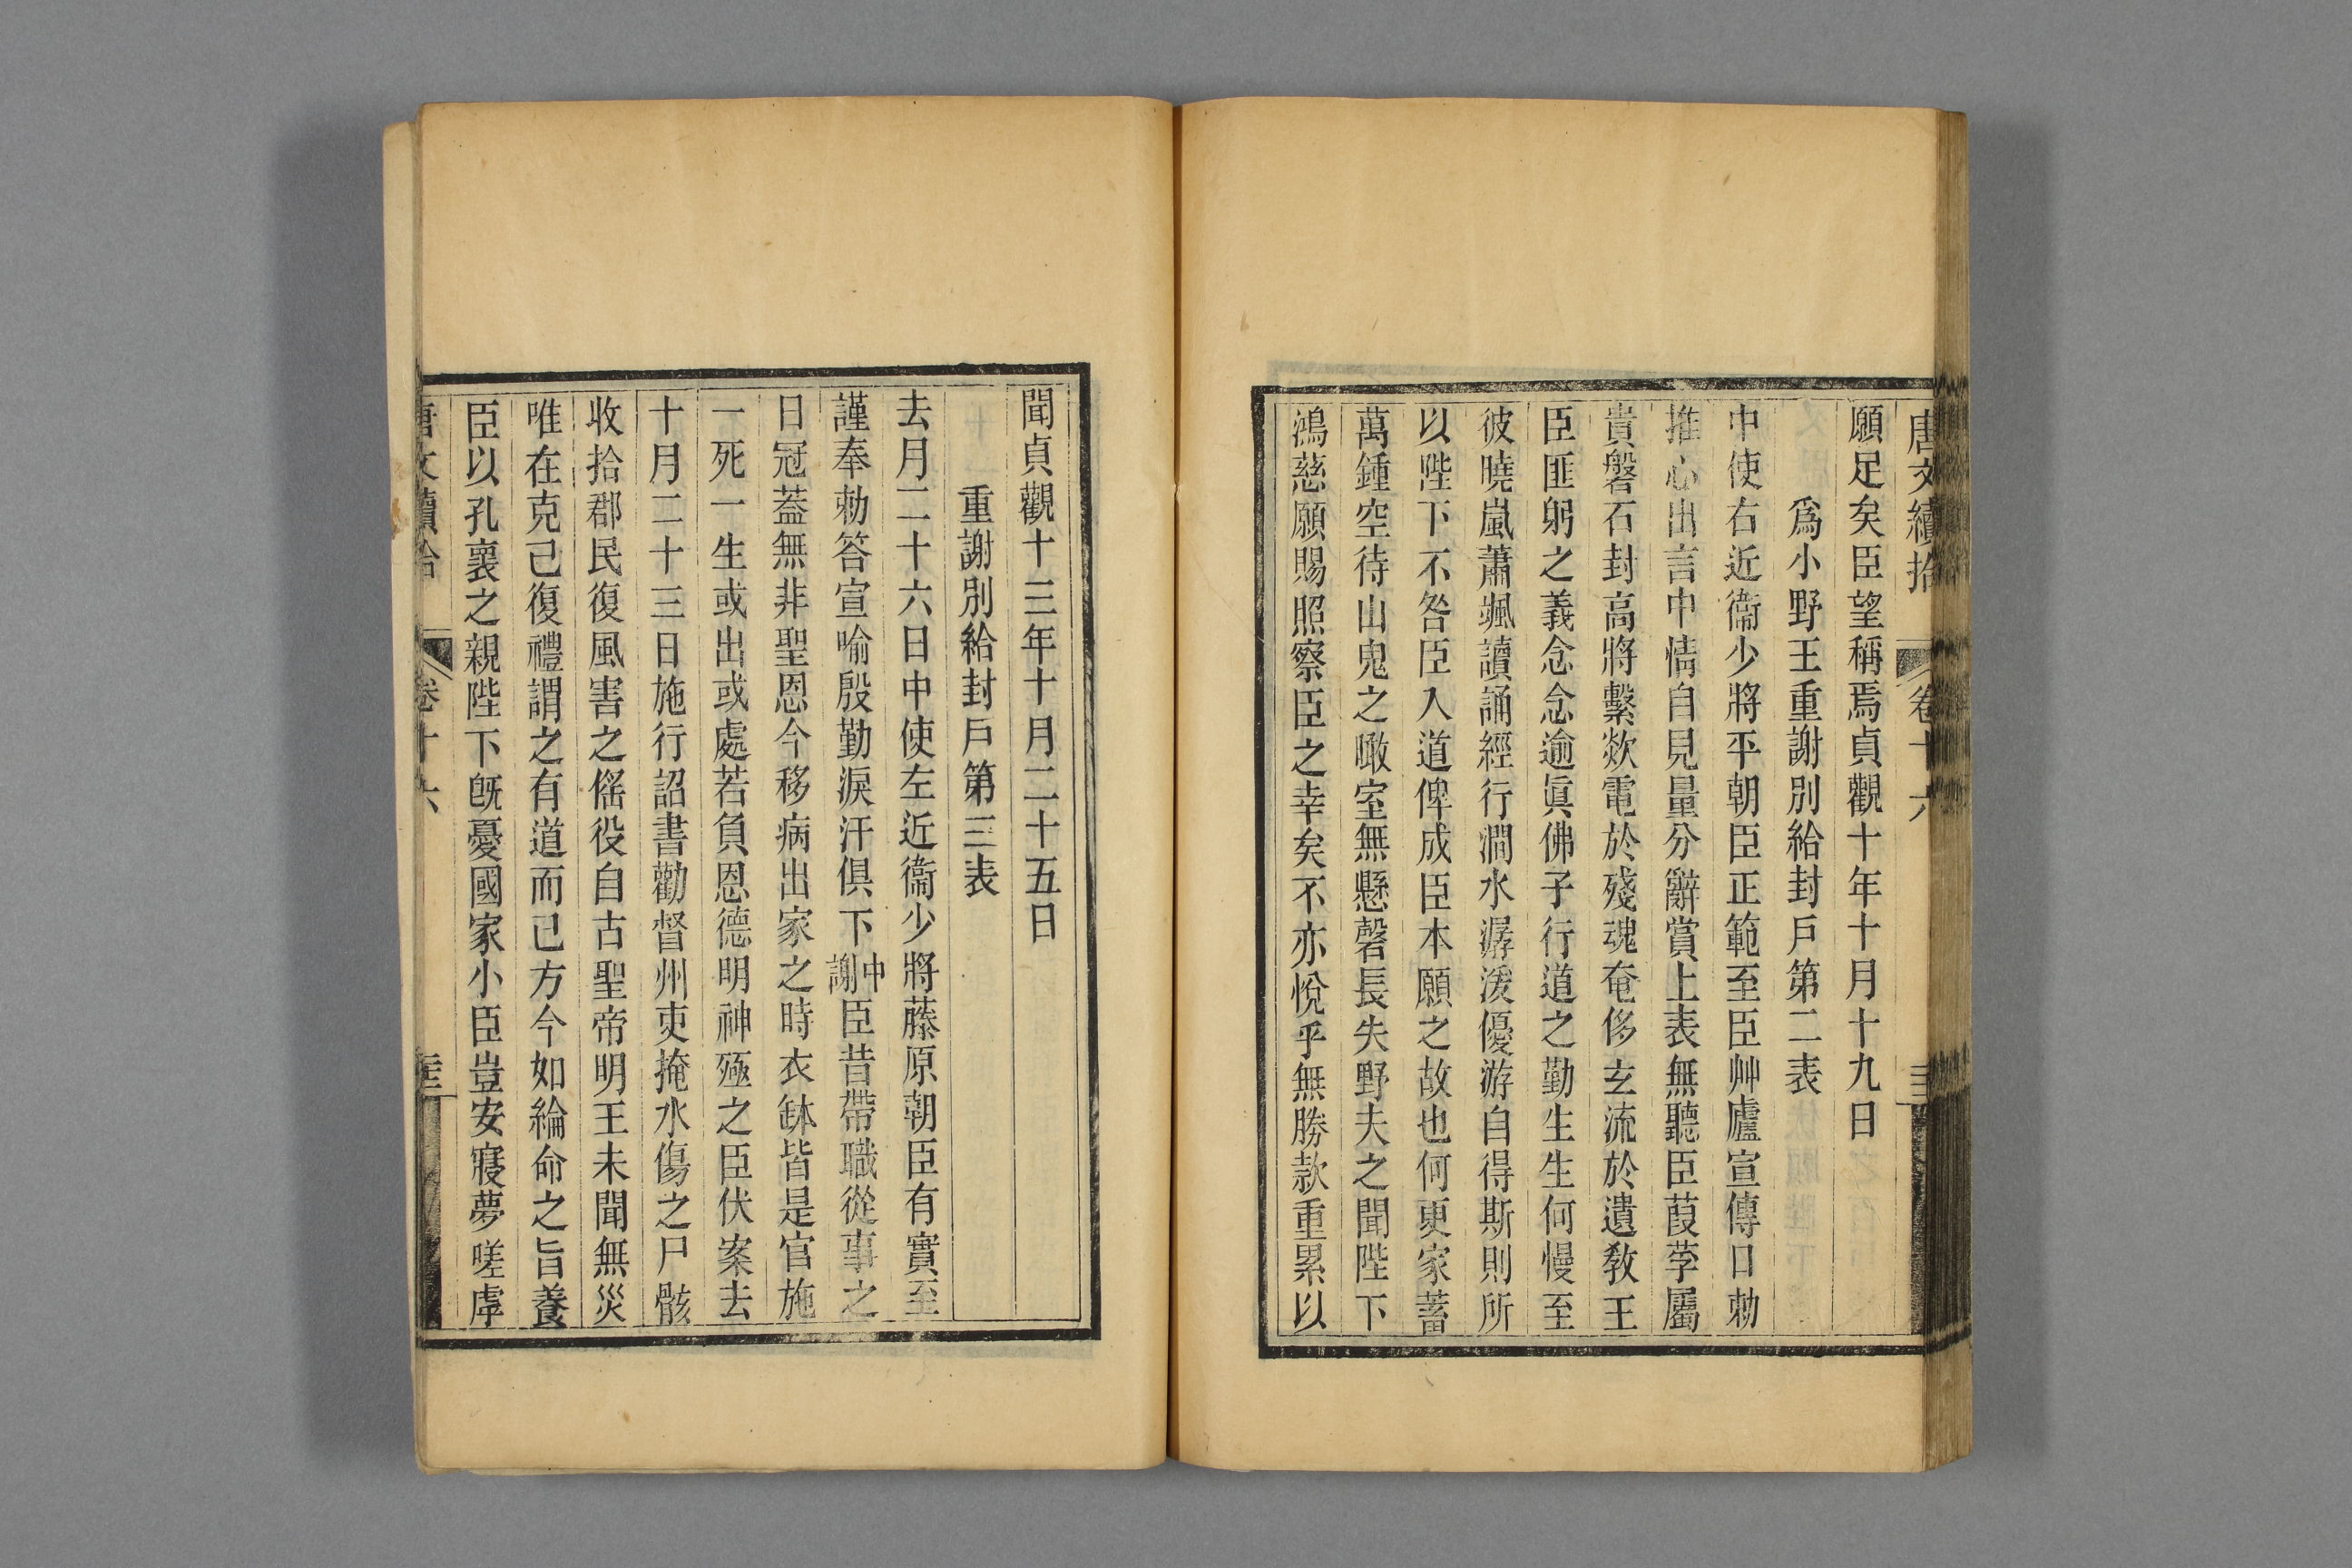 唐文續拾 卷十六
願足矣臣望稱焉貞觀十年十月十九日
爲小野王重謝別給封戶第二表
中使右近衞少將平朝臣正範至臣艸廬宣傳口勅
推心出言中情自見量分辭賞上表無聽臣葭莩屬
貴磐石封高將繫欻電於殘魂奄侈玄流於遺教王
臣匪躬之義念念逾眞佛子行道之勤生生何慢至
彼曉嵐蕭颯讀誦經行澗水潺湲優游自得斯則所
以陛下不咎臣入道俾成臣本願之故也何更家蓄
萬鍾空待山鬼之瞰室無懸磬長失野夫之聞陛下
鴻慈願賜照察臣之幸矣不亦悅乎無勝款重累以
聞貞觀十三年十月二十五日
重謝別給封戶第三表
去月二十六日中使左近衞少將藤原朝臣有實至
謹奉勅答宣喻殷勤淚汗俱下中謝臣昔帶職從事之
日冠葢無非聖恩今移病出家之時衣缽皆是官施
一死一生或出或處若負恩德明神殛之臣伏案去
十月二十三日施行詔書勸督州吏掩水傷之尸骸
收拾郡民復風害之傜役自古聖帝明王未聞無災
唯在克己復禮謂之有道而已方今如綸命之旨養
臣以孔褱之親陛下旣憂國家小臣豈安寢夢嗟虖
唐文續拾 卷十六